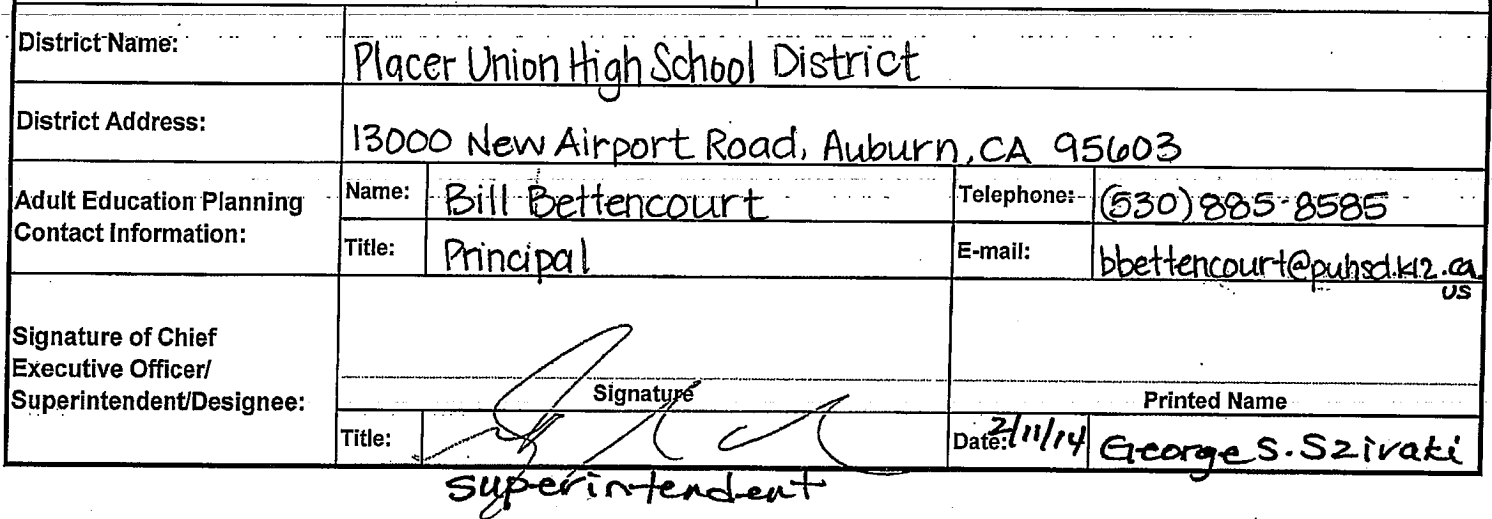 District Name: Placer Union High School District
District Address: 13000 New Airport Road, Auburn, CA 95603
Adult Education Planning Contact Information:
Name: Bill Bettencourt Telephone: (530) 885-8585
Title: Principal E-mail: bbettencourt@puhsd.k12.ca.
us
Signature of Chief
Executive Officer/
Superintendent/Designee:
Signature Printed Name
Title: Date: 2/11/14 George S. Szivaki
Superintendent